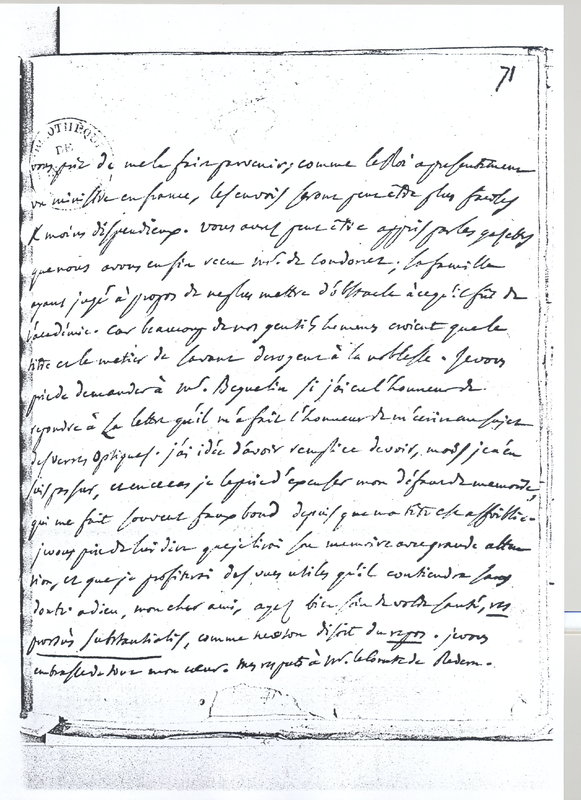 71
BIBLIOTHEQUE
DE
vous prie de me le faire parvenir; comme le Roi a presentement
un ministre en france, les envois seront peut etre plus faciles
& moins dispendieux. vous avez peut etre appris par les gazettes
que nous avons enfin reçu mr. de Condorcet. Sa famille
ayant jugé à propos de ne plus mettre d'obstacle à ce qu'il fût de
l'académie. Car beaucoup de nos gentils hommes croient que le
titre et le metier de savant derogent à la noblesse. Je vous
prie de demander à Mr. Beguelin si j'ai eu l'honneur de
repondre à la lettre qu'il m'a fait l'honneur de m'ecrire au sujet
des verres optiques. j'ai idée d'avoir rempli ce devoir, mais je n'en
suis pas sur, et en ce cas je le prie d'excuser mon défaut de memoire,
qui me fait souvent faux bond depuis que ma tête est affoiblie.
je vous prie de lui dire que je lirai son memoire avec grande atten
tion, et que je profiterai des vues utiles qu'il contiendra sans
doute. adieu, mon cher ami, ayez bien soin de votre santé, res
prorsùs substantialis, comme newton disoit du repos. je vous
embrasse de tout mon cœur. mes respects à Mr. le Comte de Redern.